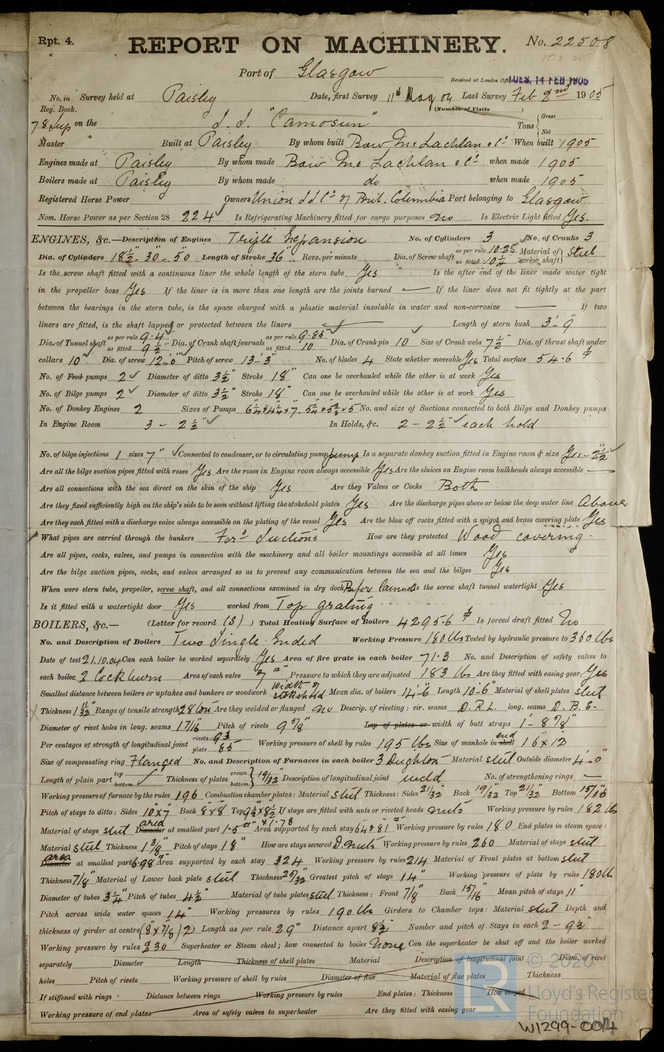 Rpt. 4.
REPORT ON MACHINERY.
No. 22508
Port of Glasgow
Received at London Office TUES. 14 FEB 1905
No. in Survey held at Paisley Date, first Survey 11th May 04 Last Survey Feb 2nd 1905
Reg. Book. (Number of Visits
78 Sup on the S.S. "Camosun" Tons Gross Net
Master Built at Paisley By whom built Bow McLachlan & Co When built 1905
Engines made at Paisley By whom made Bow McLachlan & Co when made 1905
Boilers made at Paisley By whom made do when made 1905
Registered Horse Power Owners Union SS Co of Brit. Columbia Port belonging to Glasgow
Nom. Horse Power as per Section 28 224 Is Refrigerating Machinery fitted for cargo purposes No Is Electric Light fitted Yes.
ENGINES, &c.—Description of Engines Triple Expansion No. of Cylinders 3 No. of Cranks 3
Dia. of Cylinders 18½-30-50 Length of Stroke 36" Revs. per minute Dia. of Screw shaft as per rule 10.25 as fitted 10¼ Material of screw shaft steel
Is the screw shaft fitted with a continuous liner the whole length of the stern tube Yes Is the after end of the liner made water tight
in the propeller boss Yes If the liner is in more than one length are the joints burned — If the liner does not fit tightly at the part
between the bearings in the stern tube, is the space charged with a plastic material insoluble in water and non-corrosive — If two
liners are fitted, is the shaft lapped or protected between the liners — Length of stern bush 3'-9"
Dia. of Tunnel shaft as per rule 9.4 as fitted 9½ Dia. of Crank shaft journals as per rule 9.85 as fitted 10 Dia. of Crank pin 10 Size of Crank webs 7½ Dia. of thrust shaft under
collars 10 Dia. of screw 12-0" Pitch of screw 13-3" No. of blades 4 State whether moveable Yes Total surface 54.6
No. of Feed pumps 2 Diameter of ditto 3½" Stroke 18" Can one be overhauled while the other is at work Yes
No. of Bilge pumps 2 Diameter of ditto 3½" Stroke 18" Can one be overhauled while the other is at work Yes
No. of Donkey Engines 2 Sizes of Pumps No. and size of Suctions connected to both Bilge and Donkey pumps
In Engine Room 3 - 2½" In Holds, &c. 2 - 2½" each hold
No. of bilge injections 1 sizes 7" Connected to condenser, or to circulating pump pump Is a separate donkey suction fitted in Engine room & size Yes - 2½
Are all the bilge suction pipes fitted with roses Yes Are the roses in Engine room always accessible Yes Are the sluices on Engine room bulkheads always accessible —
Are all connections with the sea direct on the skin of the ship Yes Are they Valves or Cocks Both
Are they fixed sufficiently high on the ship's side to be seen without lifting the stokehold plates Yes Are the discharge pipes above or below the deep water line Above
Are they each fitted with a discharge valve always accessible on the plating of the vessel Yes Are the blow off cocks fitted with a spigot and brass covering plate Yes
What pipes are carried through the bunkers Ford Suctions How are they protected Wood covering
Are all pipes, cocks, valves, and pumps in connection with the machinery and all boiler mountings accessible at all times Yes
Are the bilge suction pipes, cocks, and valves arranged so as to prevent any communication between the sea and the bilges Yes
When were stern tube, propeller, screw shaft, and all connections examined in dry dock Before launch Is the screw shaft tunnel watertight Yes
Is it fitted with a watertight door Yes worked from Top grating
BOILERS, &c.— (Letter for record (S) Total Heating Surface of Boilers 4295.6 Is forced draft fitted No
No. and Description of Boilers Two Single Ended Working Pressure 180 lbs Tested by hydraulic pressure to 360 lbs
Date of test 21.10.04 Can each boiler be worked separately Yes Area of fire grate in each boiler 71.3 No. and Description of safety valves to
each boiler 2 Cockburn Area of each valve Pressure to which they are adjusted 183 lbs Are they fitted with easing gear Yes
Smallest distance between boilers or uptakes and bunkers or woodwork width of stokehold Mean dia. of boilers 14-6 Length 10-6 Material of shell plates steel
Thickness Range of tensile strength 28 tons Are they welded or flanged no Descrip. of riveting: cir. seams D.R.L. long. seams D.B.S.
Diameter of rivet holes in long. seams 1 7/16" Pitch of rivets 9 7/8" Lap of plates or width of butt straps 1'-8 7/8"
Per centages of strength of longitudinal joint rivets 93 plate 85 Working pressure of shell by rules 195 lbs Size of manhole in shell end 16 x 12
Size of compensating ring Flanged No. and Description of Furnaces in each boiler 3 Deighton Material steel Outside diameter 4-0"
Length of plain part top bottom Thickness of plates crown bottom 19/32 Description of longitudinal joint weld No. of strengthening rings —
Working pressure of furnace by the rules 196 Combustion chamber plates: Material steel Thickness: Sides 21/32 Back 19/32 Top 21/32 Bottom 15/16
Pitch of stays to ditto: Sides 10x7 Back 8x8 Top If stays are fitted with nuts or riveted heads nuts Working pressure by rules 182 lbs
Material of stays steel Diameter area at smallest part Area supported by each stay Working pressure by rules 180 End plates in steam space:
Material steel Thickness Pitch of stays 18" How are stays secured D nuts Working pressure by rules 260 Material of stays steel
Diameter area at smallest part 6.98 Area supported by each stay 324 Working pressure by rules 214 Material of Front plates at bottom steel
Thickness 7/8" Material of Lower back plate steel Thickness 29/32 Greatest pitch of stays 14" Working pressure of plate by rules 180 lb
Diameter of tubes 3¼" Pitch of tubes 4½" Material of tube plates steel Thickness: Front 7/8" Back 13/16" Mean pitch of stays 11"
Pitch across wide water spaces 14" Working pressures by rules 190 lbs Girders to Chamber tops: Material steel Depth and
thickness of girder at centre (8 x 7/8) 2 Length as per rule 29" Distance apart 8½ Number and pitch of Stays in each 2 - 9½"
Working pressure by rules 230 Superheater or Steam chest; how connected to boiler None Can the superheater be shut off and the boiler worked
separately Diameter Length Thickness of shell plates Material Description of longitudinal joint Diam. of rivet
holes Pitch of rivets Working pressure of shell by rules Diameter of flue Material of flue plates Thickness
If stiffened with rings Distance between rings Working pressure by rules End plates: Thickness How stayed
Working pressure of end plates Area of safety valves to superheater Are they fitted with easing gear
© 2020
Lloyd's Register
Foundation
W1299-0014